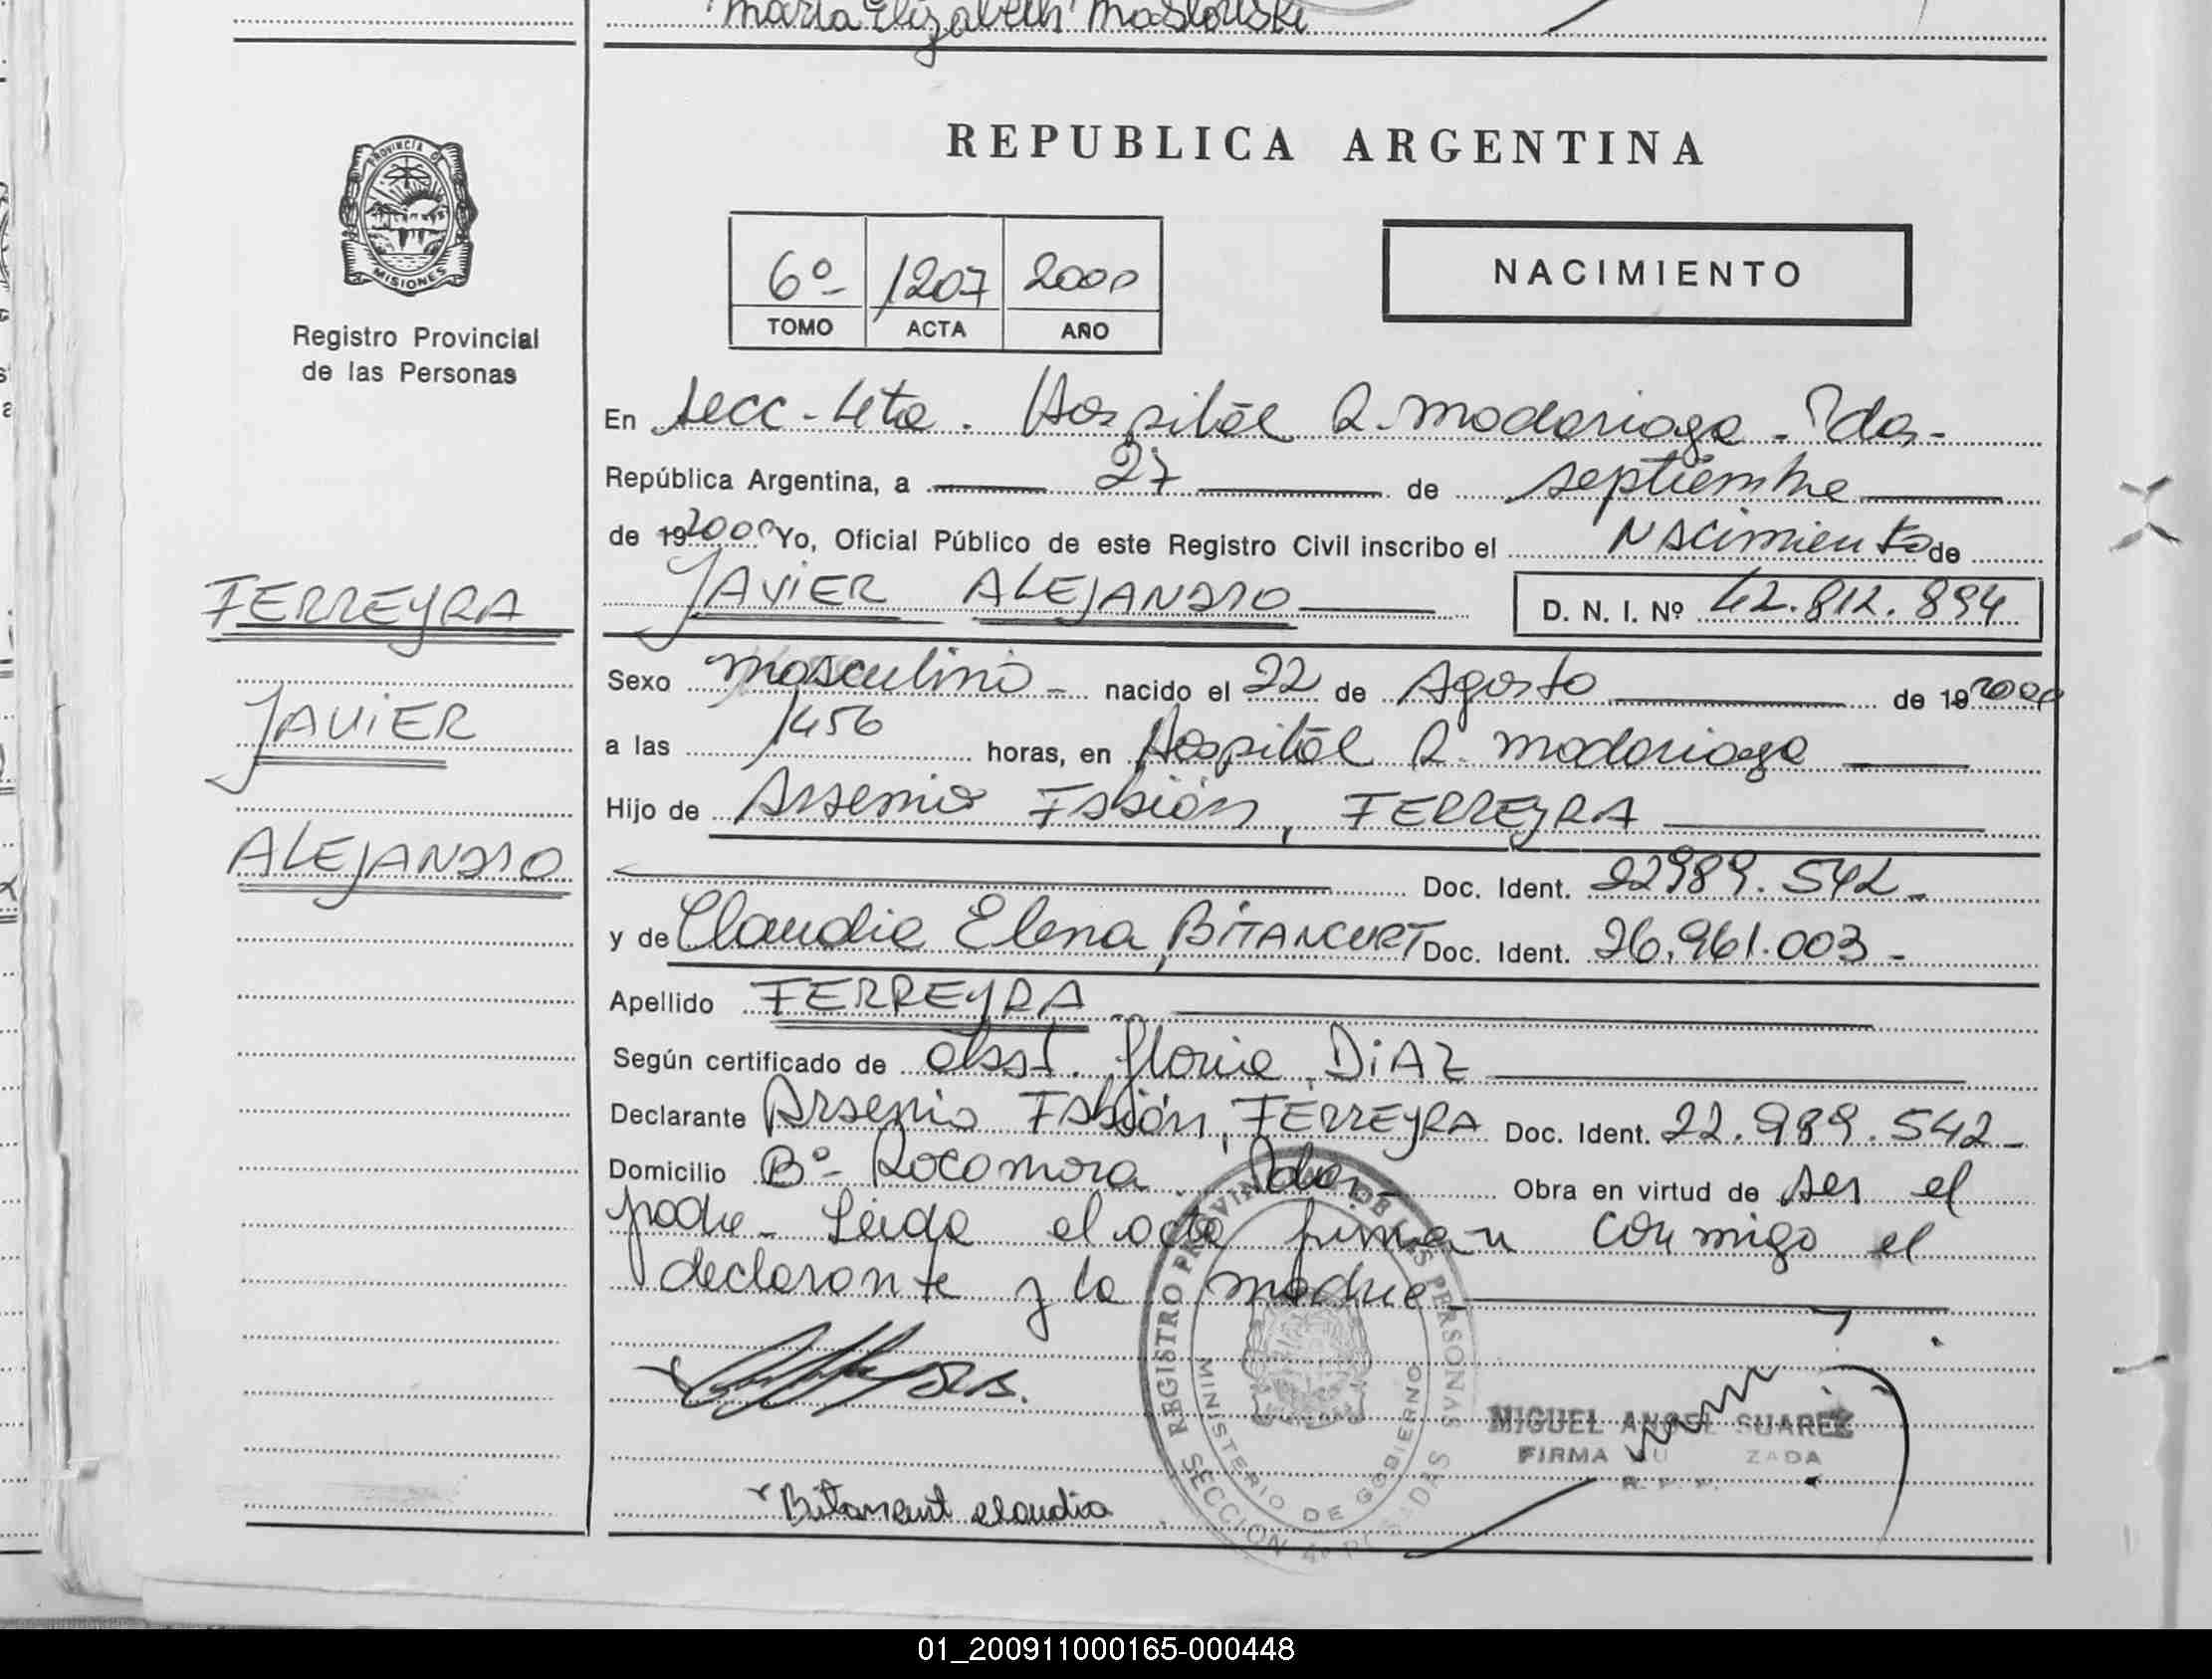 Maria Elizabeth Maslouski
PROVINCIA DE
MISIONES
Registro Provincial
de las Personas
FERREYRA
JAVIER
ALEJANDRO
REPUBLICA ARGENTINA
6º 1207 2000
TOMO ACTA AÑO
NACIMIENTO
En secc - 4ta. Hospital R. Madariaga - Pdas -
República Argentina, a 27 de septiembre
de 192000 Yo, Oficial Público de este Registro Civil inscribo el Nacimiento de
JAVIER ALEJANDRO D. N. I. Nº 42.812.894
Sexo masculino - nacido el 22 de Agosto de 192000
a las 1456 horas, en Hospital R. Madariaga
Hijo de Arsenio Fabián, FERREYRA
Doc. Ident. 22989.542 -
y de Claudia Elena, BITANCURT Doc. Ident. 26.961.003 -
Apellido FERREYRA
Según certificado de obst. Gloria DIAZ
Declarante Arsenio Fabián, FERREYRA Doc. Ident. 22.989.542 -
Domicilio Bº - Rocamora. Pdas - Obra en virtud de ser el
padre - Leída el acta firman conmigo el
declarante y la madre -
REGISTRO PROVINCIAL DE LAS PERSONAS
MINISTERIO DE GOBIERNO
SECCION 4ª POSADAS
MIGUEL ANGEL SUAREZ
FIRMA AU ZADA
R. P. P.
Bitancurt claudia
01_200911000165-000448